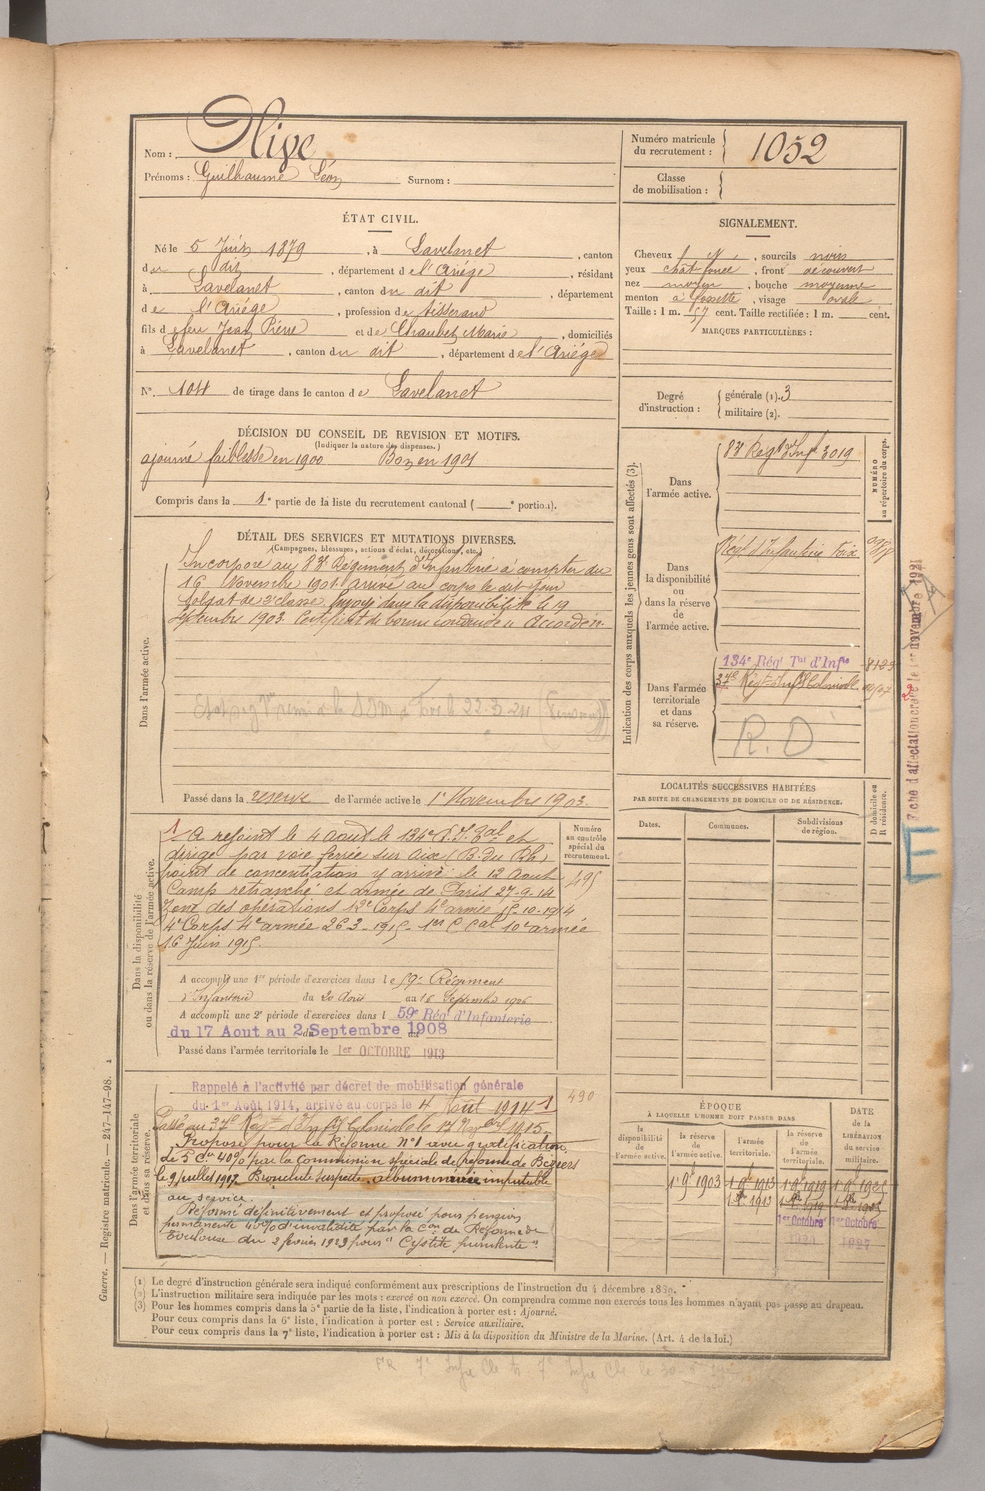 Nom : Olive
Prénoms : Guilhaume Léon Surnom :
Numéro matricule du recrutement : 1052
Classe de mobilisation :
ÉTAT CIVIL.
Né le 5 Juin 1879, à Lavelanet, canton
du dit, département de l'Ariége, résidant
à Lavelanet, canton du dit, département
de l'Ariége, profession de tisserand
fils de feu Jean Pierre et de Chaubet Marie, domiciliés
à Lavelanet, canton du dit, département de l'Ariége
N° 104 de tirage dans le canton de Lavelanet
SIGNALEMENT.
Cheveux , sourcils noirs
yeux chat foncé, front découvert
nez moyen, bouche moyenne
menton à fossette, visage ovale
Taille : 1 m. 57 cent. Taille rectifiée : 1 m. cent.
MARQUES PARTICULIÈRES :
Degré d'instruction : générale (1). 3
militaire (2).
DÉCISION DU CONSEIL DE REVISION ET MOTIFS.
(Indiquer la nature des dispenses.)
ajourné faiblesse en 1900 Bon en 1901
Compris dans la 1e partie de la liste du recrutement cantonal ( e portion).
DÉTAIL DES SERVICES ET MUTATIONS DIVERSES.
(Campagnes, blessures, actions d'éclat, décorations, etc.)
Dans l'armée active.
Incorporé au 83e Régiment d'Infanterie à compter du
16 Novembre 1901 arrivé au corps le dit jour
Soldat de 2e classe Envoyé dans la disponibilité le 19
Septembre 1903. Certificat de bonne conduite "Accordé".
Passé dans la réserve de l'armée active le 1er Novembre 1903.
Indication des corps auxquels les jeunes gens sont affectés (3).
NUMÉRO au répertoire du corps.
Dans l'armée active.
83e Régt d'Infie 3019
Dans la disponibilité ou dans la réserve de l'armée active.
Régt d'Infanterie Foix
Dans l'armée territoriale et dans sa réserve.
134e Rég Tal d'Infie
37e Régt d'Infie Coloniale
R.D
Fiche d'affectation créée le 1er novembre 1921
E
LOCALITÉS SUCCESSIVES HABITÉES
PAR SUITE DE CHANGEMENTS DE DOMICILE OU DE RÉSIDENCE.
Dates. Communes. Subdivisions de région. D domicile ou R résidence.
Dans la disponibilité ou dans la réserve de l'armée active.
Numéro au contrôle spécial du recrutement.
495
1 A rejoint le 4 août le 134e R.I. Tal et
dirigé par voie ferrée sur Aix (B. du Rh.)
point de concentration y arrivé le 12 Août
Camp retranché et armée de Paris 27-9-14
Zone des opérations 12e Corps 4e armée 15-10-1914
4e Corps 4e armée 26-3-1915 - 1er C. Cal 10e armée
16 Juin 1915.
A accompli une 1re période d'exercices dans le 59e Régiment
d'Infanterie du 20 Août au 16 Septembre 1906
A accompli une 2e période d'exercices dans l 59e Rég d'Infanterie
du 17 Aout au 2 Septembre 1908
Passé dans l'armée territoriale le 1er OCTOBRE 1913
Dans l'armée territoriale et dans sa réserve.
490
Rappelé à l'activité par décret de mobilisation générale
du 1er Août 1914, arrivé au corps le 4 Août 1914 1
Passé au 37e Régt d'Infie Coloniale le 14 1915
Proposé pour la Réforme N°1 avec gratification
de 5e Cie 40% par la Commission spéciale de réforme de Béziers
le 9 juillet 1917. Bronchite suspecte, albuminurie imputable
au service.
Réformé définitivement et proposé pour pension
permanente 40% d'invalidité par la Con de Réforme de
Toulouse du 2 février 1923 pour "Cystite purulente".
ÉPOQUE
À LAQUELLE L'HOMME DOIT PASSER DANS
la disponibilité de l'armée active. la réserve de l'armée active. l'armée territoriale. la réserve de l'armée territoriale.
DATE de la LIBÉRATION du service militaire.
1 9bre 1903 1 9bre 1913 1 9bre 1919 1 9bre 1925
1er Octobre 1er Octobre
1927
Guerre. — Registre matricule. — 247-147-98.
(1) Le degré d'instruction générale sera indiqué conformément aux prescriptions de l'instruction du 4 décembre 1889.
(2) L'instruction militaire sera indiquée par les mots : exercé ou non exercé. On comprendra comme non exercés tous les hommes n'ayant pas passé au drapeau.
(3) Pour les hommes compris dans la 5e partie de la liste, l'indication à porter est : Ajourné.
Pour ceux compris dans la 6e liste, l'indication à porter est : Service auxiliaire.
Pour ceux compris dans la 7e liste, l'indication à porter est : Mis à la disposition du Ministre de la Marine. (Art. 4 de la loi.)